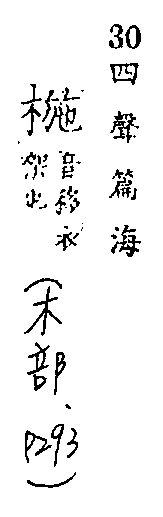 30四聲篇海
椸音移衣
架也
(木部、P293)